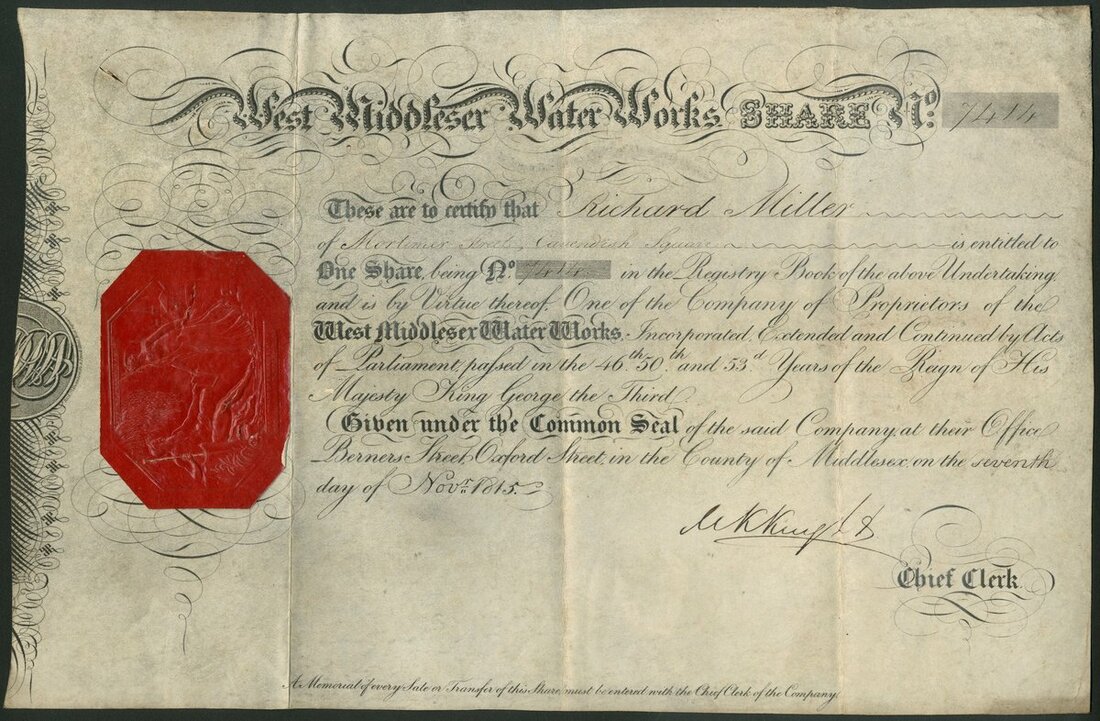 West Middlesex Water Works SHARE No. 7414
These are to certify that Richard Miller
of Mortimer Street, Cavendish Square is entitled to
One Share, being No. 7414 in the Registry Book of the above Undertaking
and is by Virtue thereof, One of the Company of Proprietors of the
West Middlesex Water Works, Incorporated, Extended and Continued by Acts
of Parliament, passed in the 46th 50th and 53d Years of the Reign of His
Majesty King George the Third.
Given under the Common Seal of the said Company, at their Office
Berners Street, Oxford Street, in the County of Middlesex, on the seventh
day of Novr. 1815.
Knight
Chief Clerk
A Memorial of every Sale or Transfer of this Share must be entered with the Chief Clerk of the Company.